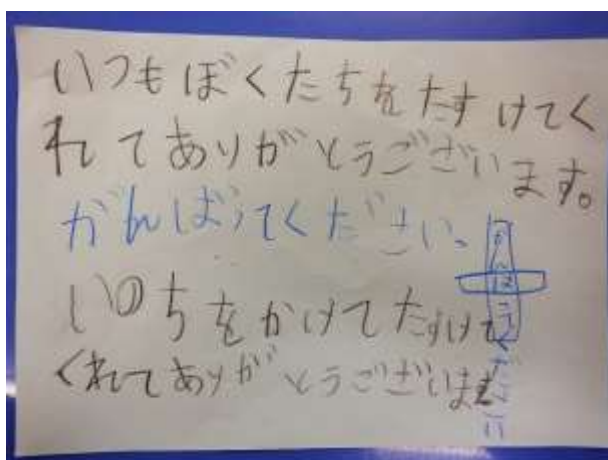 いつもぼくたちをたすけてく
れてありがとうございます。
がんばってください。
いのちをかけてたすけて
くれてありがとうございます